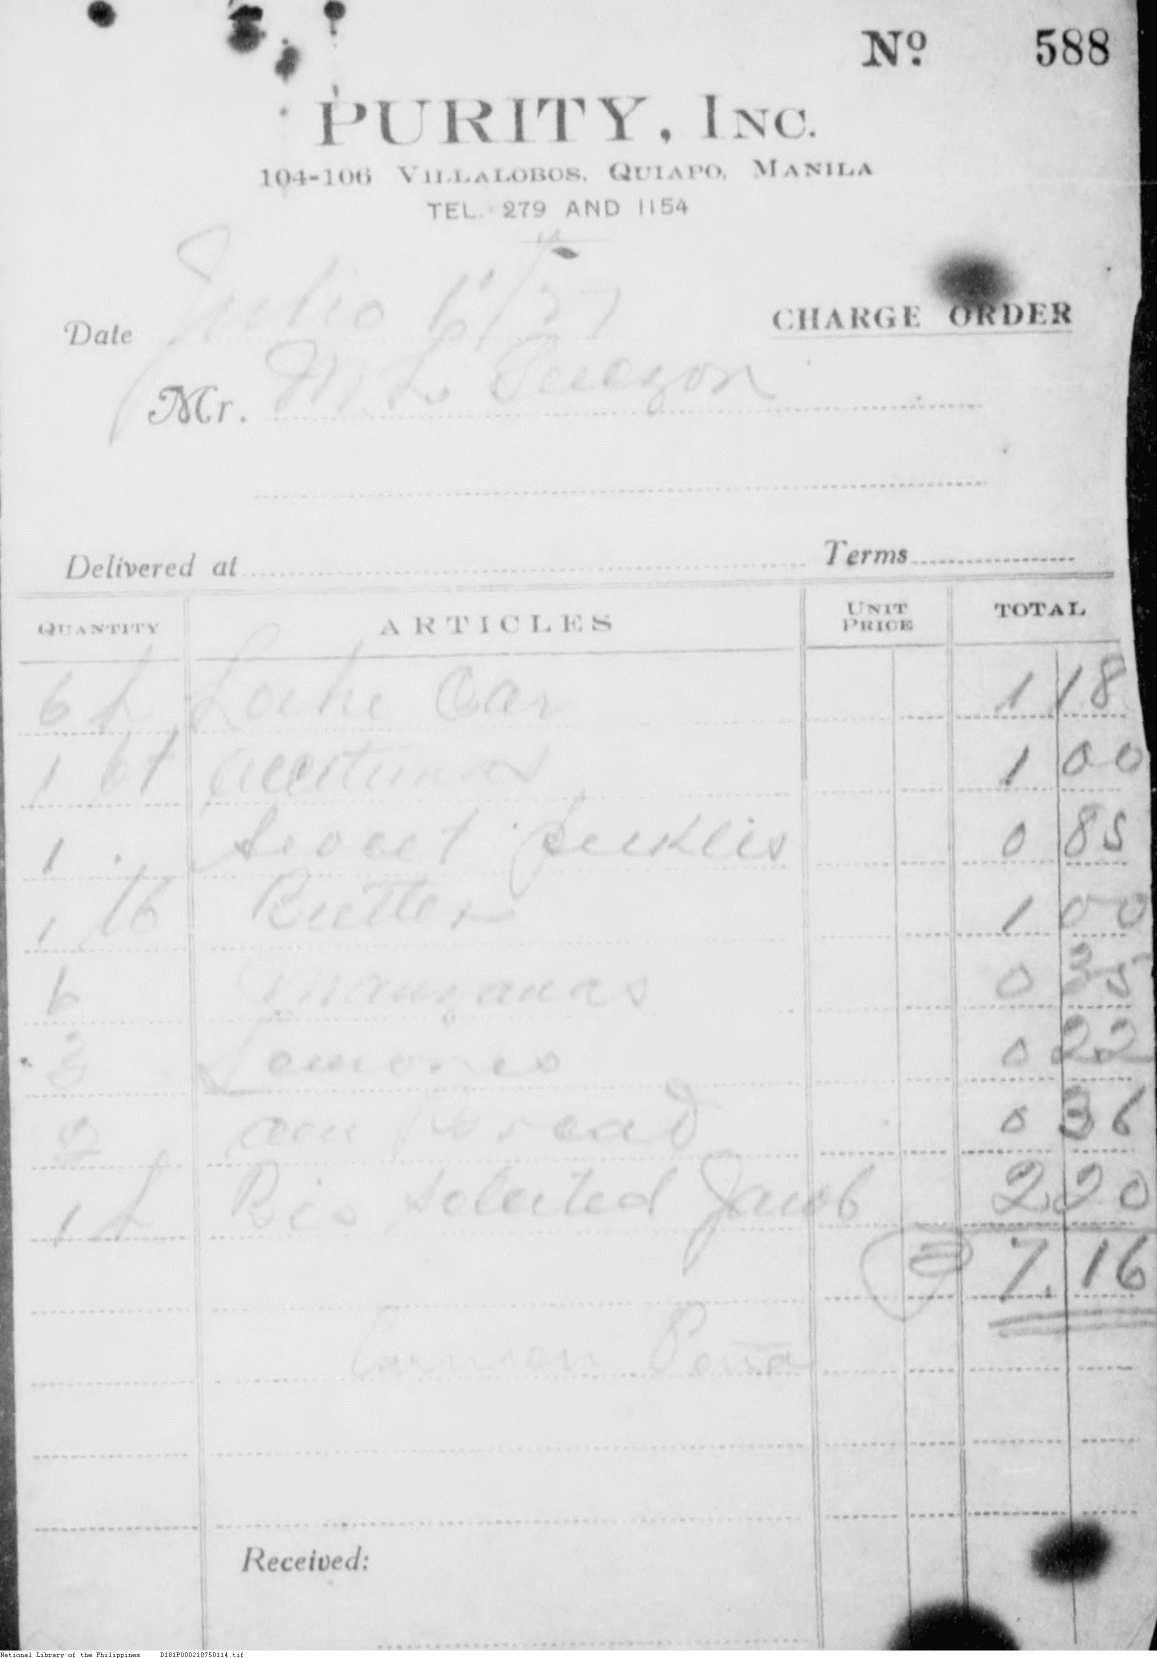 No. 588
PURITY, INC.
104-106 VILLALOBOS, QUIAPO, MANILA
TEL. 279 AND 1154
Date Julio 6/27
CHARGE ORDER
Mr. M L Quezon
Delivered at Terms
QUANTITY ARTICLES UNIT PRICE TOTAL
6 L Leche Oar 1 18
1 bt aceitunas 1 00
1 Sweet pickles 0 85
1 lb Butter 1 00
6 Manzanas 0 35
3 Lemones 0 22
2 Bread 0 36
1 L Bis selected Jacob 2 20
7.16
Carmen Peña
Received:
National Library of the Philippines D181P000210750114.tif